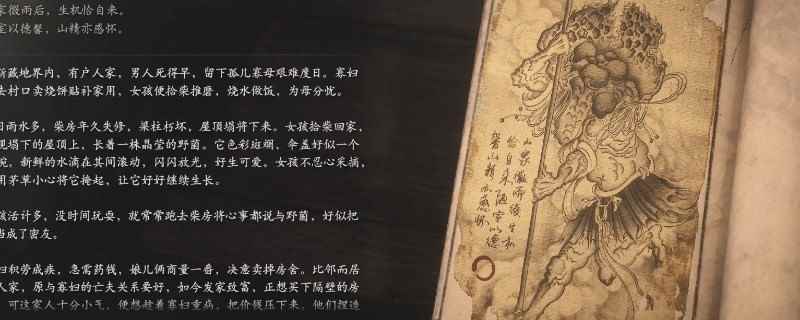 家微雨后，生机恰自来。
室以德馨，山精亦感怀。
新藏地界内，有户人家，男人死得早，留下孤儿寡母艰难度日。寡妇
去村口卖烧饼贴补家用，女孩便拾柴推磨，烧水做饭，为母分忧。
日雨水多，柴房年久失修，梁柱朽坏，屋顶塌将下来。女孩拾柴回家，
现塌下的屋顶上，长着一株晶莹的野菌。它色彩斑斓，伞盖好似一个
碗，新鲜的水滴在其间滚动，闪闪放光，好生可爱。女孩不忍心采摘，
用茅草小心将它掩起，让它好好继续生长。
孩活计多，没时间玩耍，就常常跑去柴房将心事都说与野菌，好似把
当成了密友。
妇积劳成疾，急需药钱，娘儿俩商量一番，决意卖掉房舍。比邻而居
人家，原与寡妇的亡夫关系要好，如今发家致富，正想买下隔壁的房
可这家人十分小气，便想趁着寡妇重病，把价钱压下来。他们捏造
山家微雨后生机
恰自来陋室以德
馨山精亦感怀